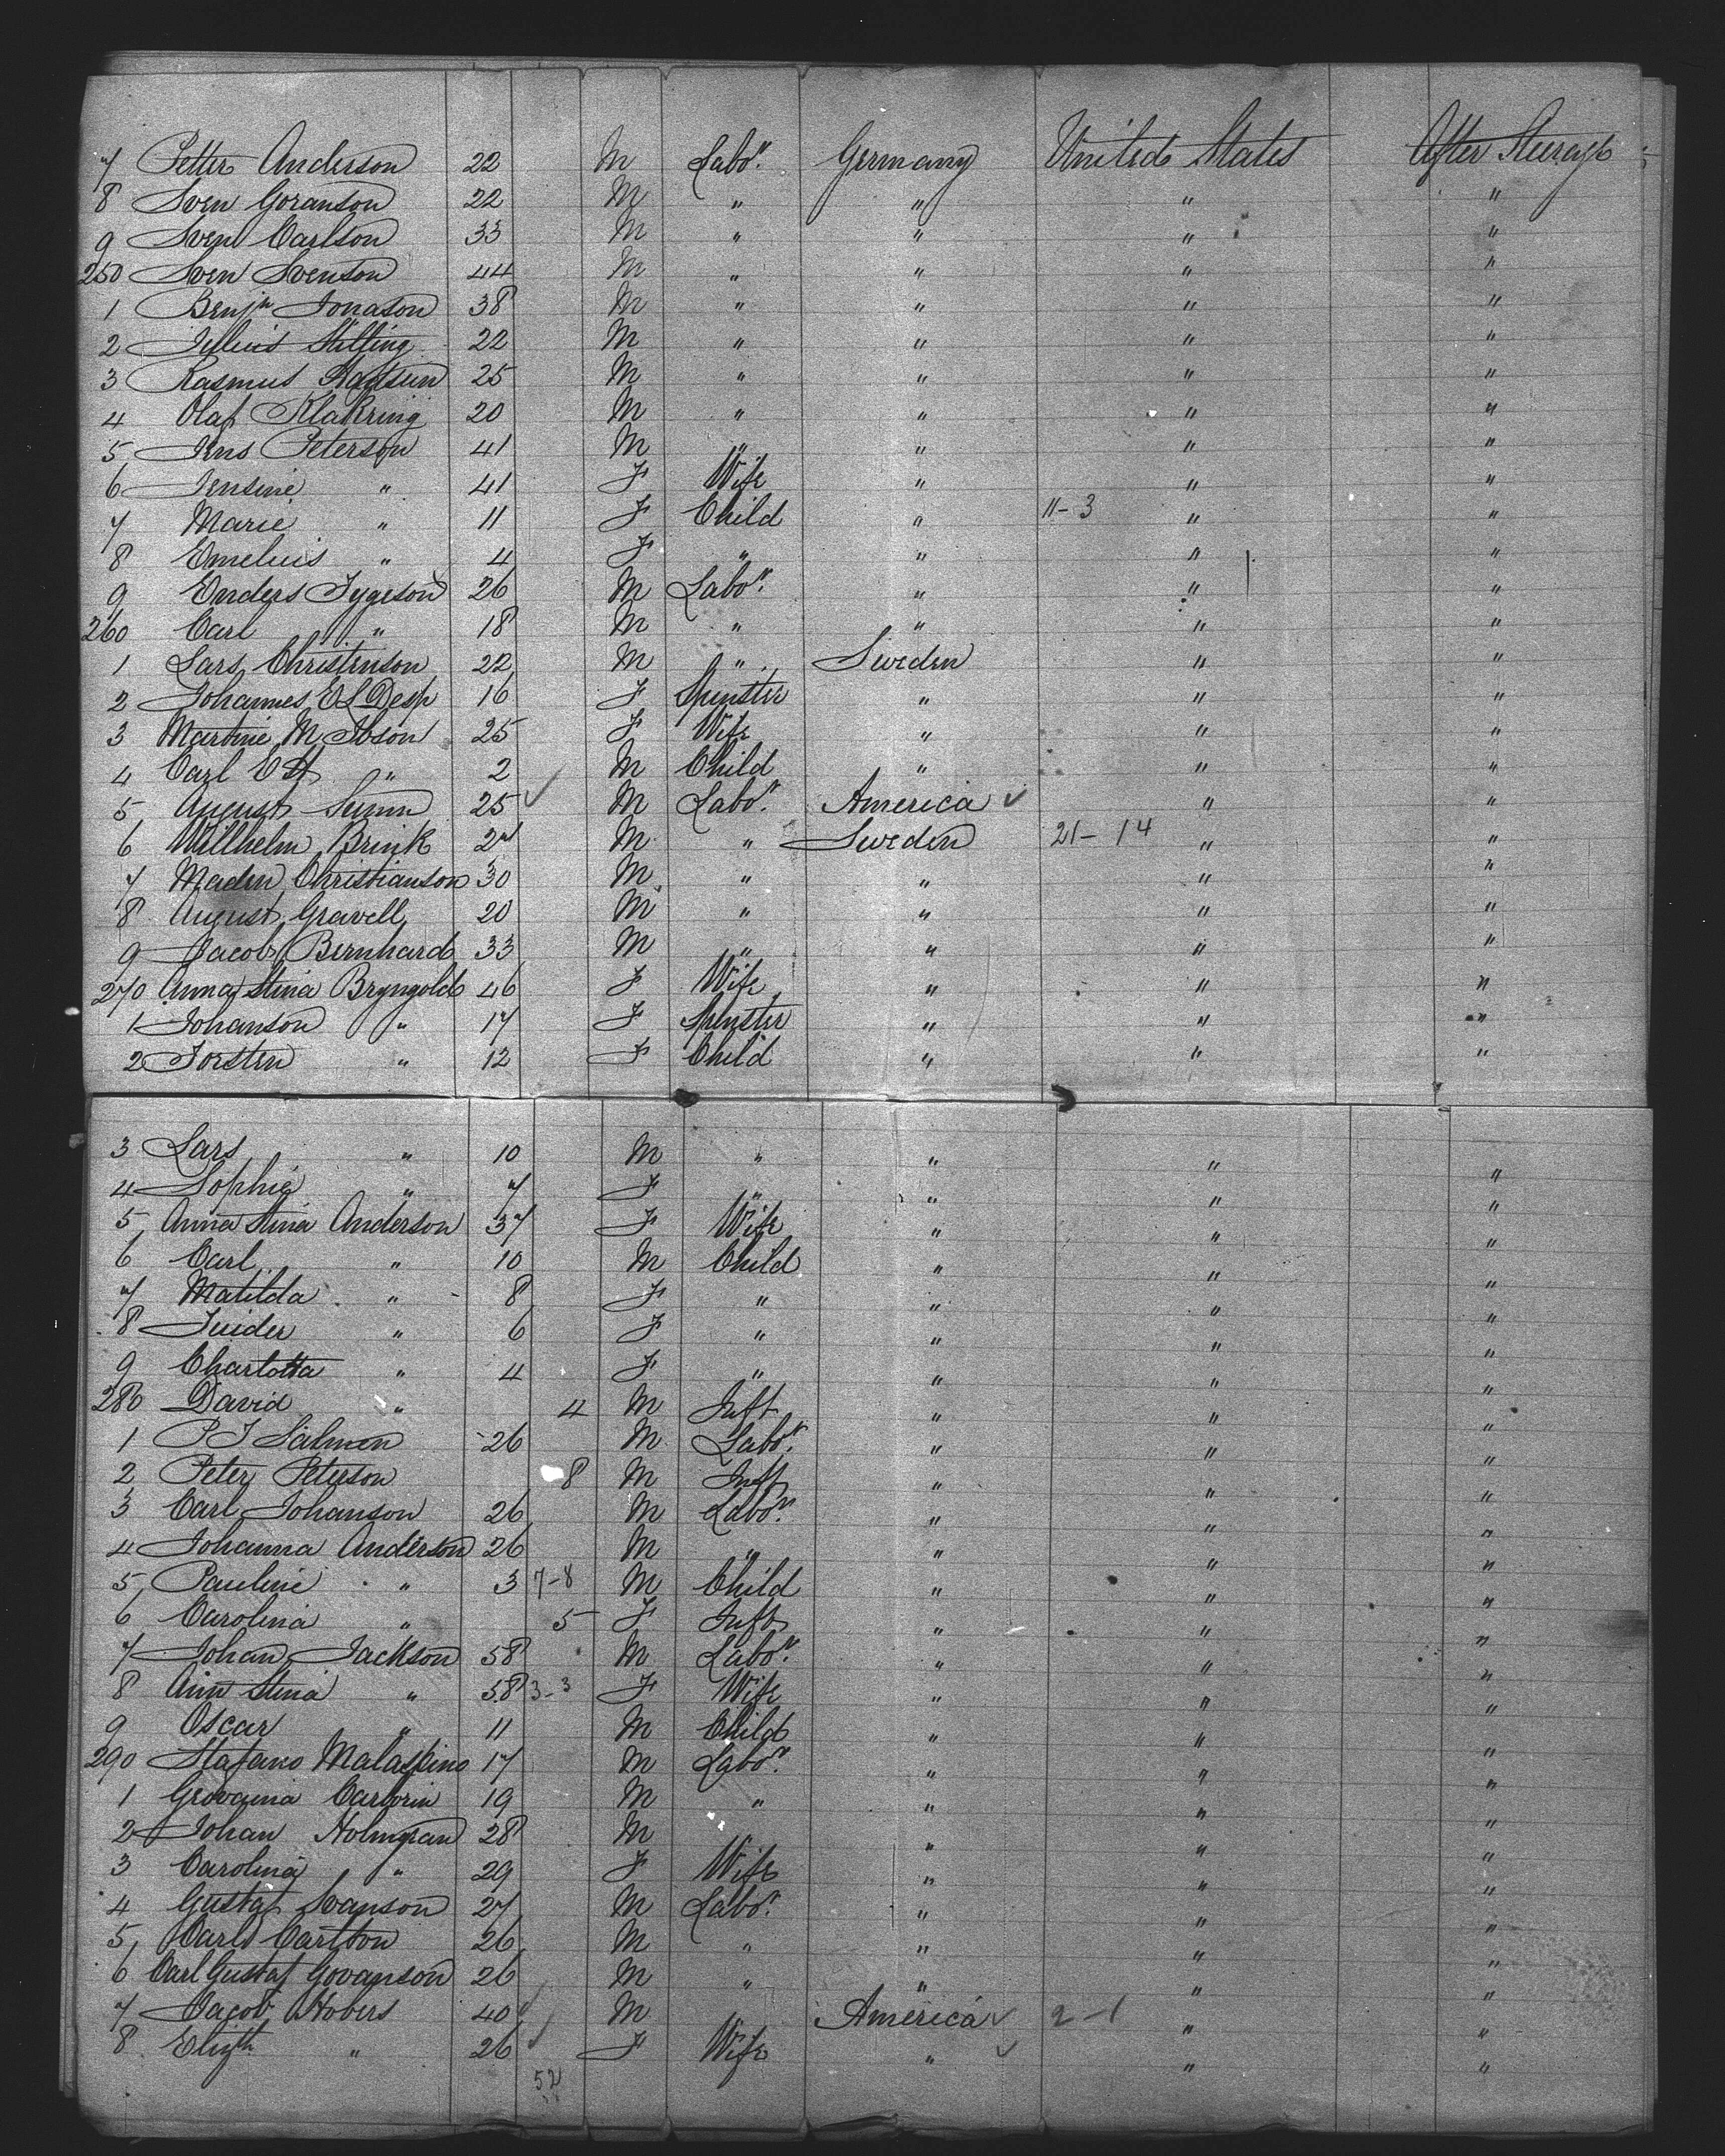 7 Petter Anderson 22 M Labor. Germany United States After Steerage
8 Sven Goranson 22 M " " " "
9 Sven Carlson 33 M " " " "
250 Sven Svenson 44 M " " " "
1 Benjn Jonason 38 M " " " "
2 Julius 22 M " " " "
3 Rasmus 25 M " " " "
4 Olaf Klakring 20 M " " " "
5 Jens Peterson 41 M " " " "
6 Jensine " 41 F Wife " " "
7 Marie " 11 F Child " 11-3 " "
8 Emelius " 4 F " " " "
9 Enders Tygeson 26 M Labor. " " "
260 Carl " 18 M " " " "
1 Lars Christenson 22 M " Sweden " "
2 Johannes E L Desp 16 F Spinster " " "
3 Martine M Ibson 25 F Wife " " "
4 Carl E A " 2 M Child " " "
5 August 25 ✓ M Labor. America ✓ " "
6 Willhelm Brink 27 M " Sweden 21-14 " "
7 Maden Christianson 30 M " " " "
8 August Gravell 20 M " " " "
9 Jacob Bernhard 33 M " " " "
270 Anna Stina Bryngold 46 F Wife " " "
1 Johanson " 17 F Spinster " " "
2 Torsten " 12 F Child " " "
3 Lars " 10 M " " " "
4 Sophie " 7 F " " " "
5 Anna Stina Anderson 37 F Wife " " "
6 Carl " 10 M Child " " "
7 Matilda " 8 F " " " "
8 " 6 F " " " "
9 Charlotta " 4 F " " " "
280 David " 4 M Inft " " "
1 P J Salmen 26 M Labor. " " "
2 Peter Peterson 8 M Inft " " "
3 Carl Johanson 26 M Labor. " " "
4 Johanna Anderson 26 M " " " "
5 Pauline " 3 7-8 M Child " " "
6 Carolina " 5 F Inft " " "
7 Johan Jackson 58 M Labor. " " "
8 Ann Stina " 58 3-3 F Wife " " "
9 Oscar " 11 M Child " " "
290 Stafano Malaspino 17 M Labor. " " "
1 Geovanna 19 M " " " "
2 Johan Holmgran 28 M " " "
3 Carolina " 29 F Wife " " "
4 Gustaf Svanson 27 M Labor. " " "
5 Carl Carlson 26 M " " " "
6 Carl Gustaf Govanson 26 M " " " "
7 Jacob Hobers 40 ✓ M America ✓ 2-1 " "
8 Elizth " 26 ✓ F Wife " ✓ " "
52